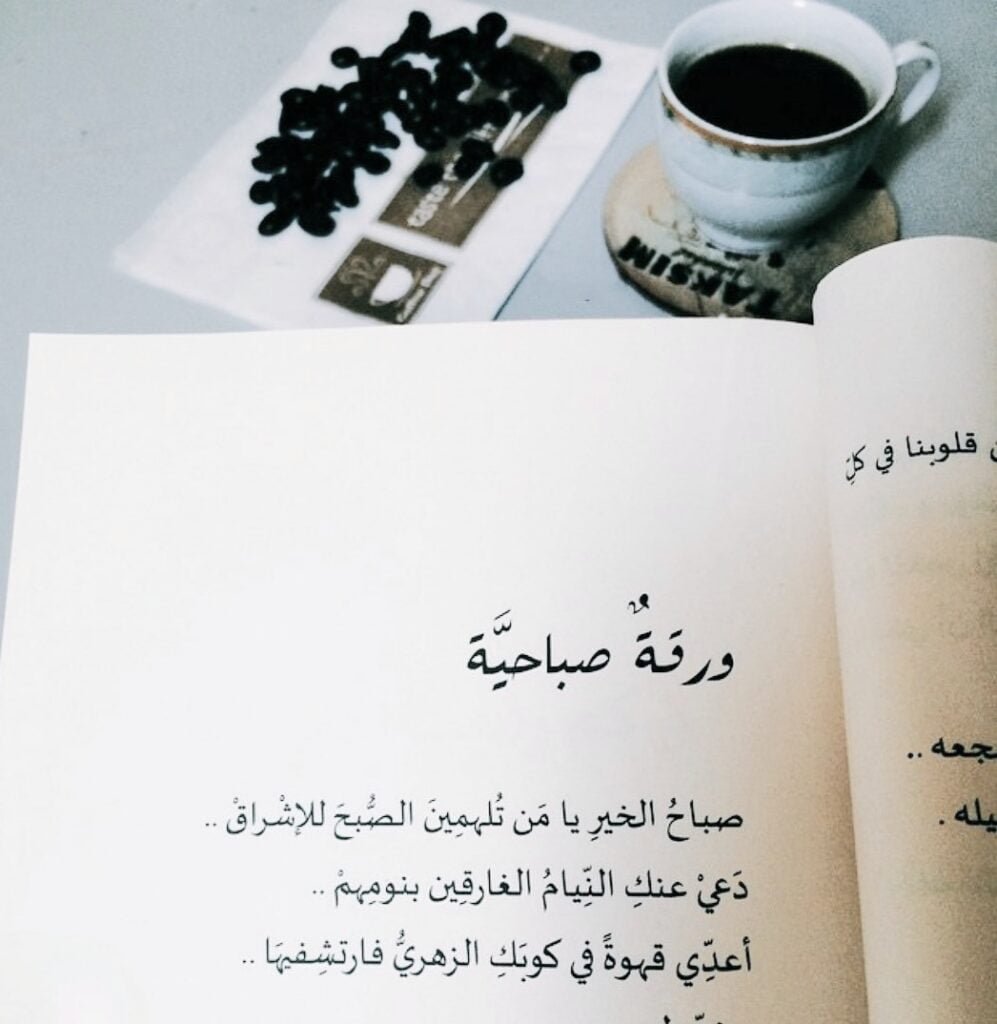 TAKSIM
taste
قلوبنا في كلِّ
ورقةٌ صباحيَّة
صباحُ الخيرِ يا مَن تُلهمِينَ الصُّبحَ للإشْراقْ ..
دَعيْ عنكِ النِّيامُ الغارقِين بنومِهمْ ..
أعدِّي قهوةً في كوبَكِ الزهريُّ فارتشِفيهَا ..